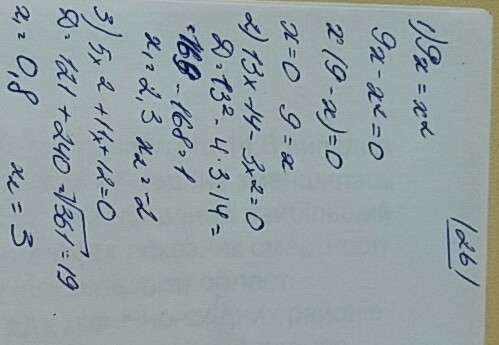 126)
1) 9x = x²
9x - x² = 0
x(9 - x) = 0
x = 0 9 = x
2) 13x + 14 - 3x2 = 0
D = 13² - 4 · 3 · 14 =
= 169 - 168 = 1
x₁ = 2,3 x₂ = -2
3) 5x2 + 11x + 12 = 0
D = 121 + 240 = √361 = 19
x₁ = 0,8 x₂ = 3